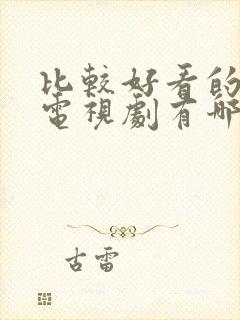 比較好看的
電視劇有哪
古雷